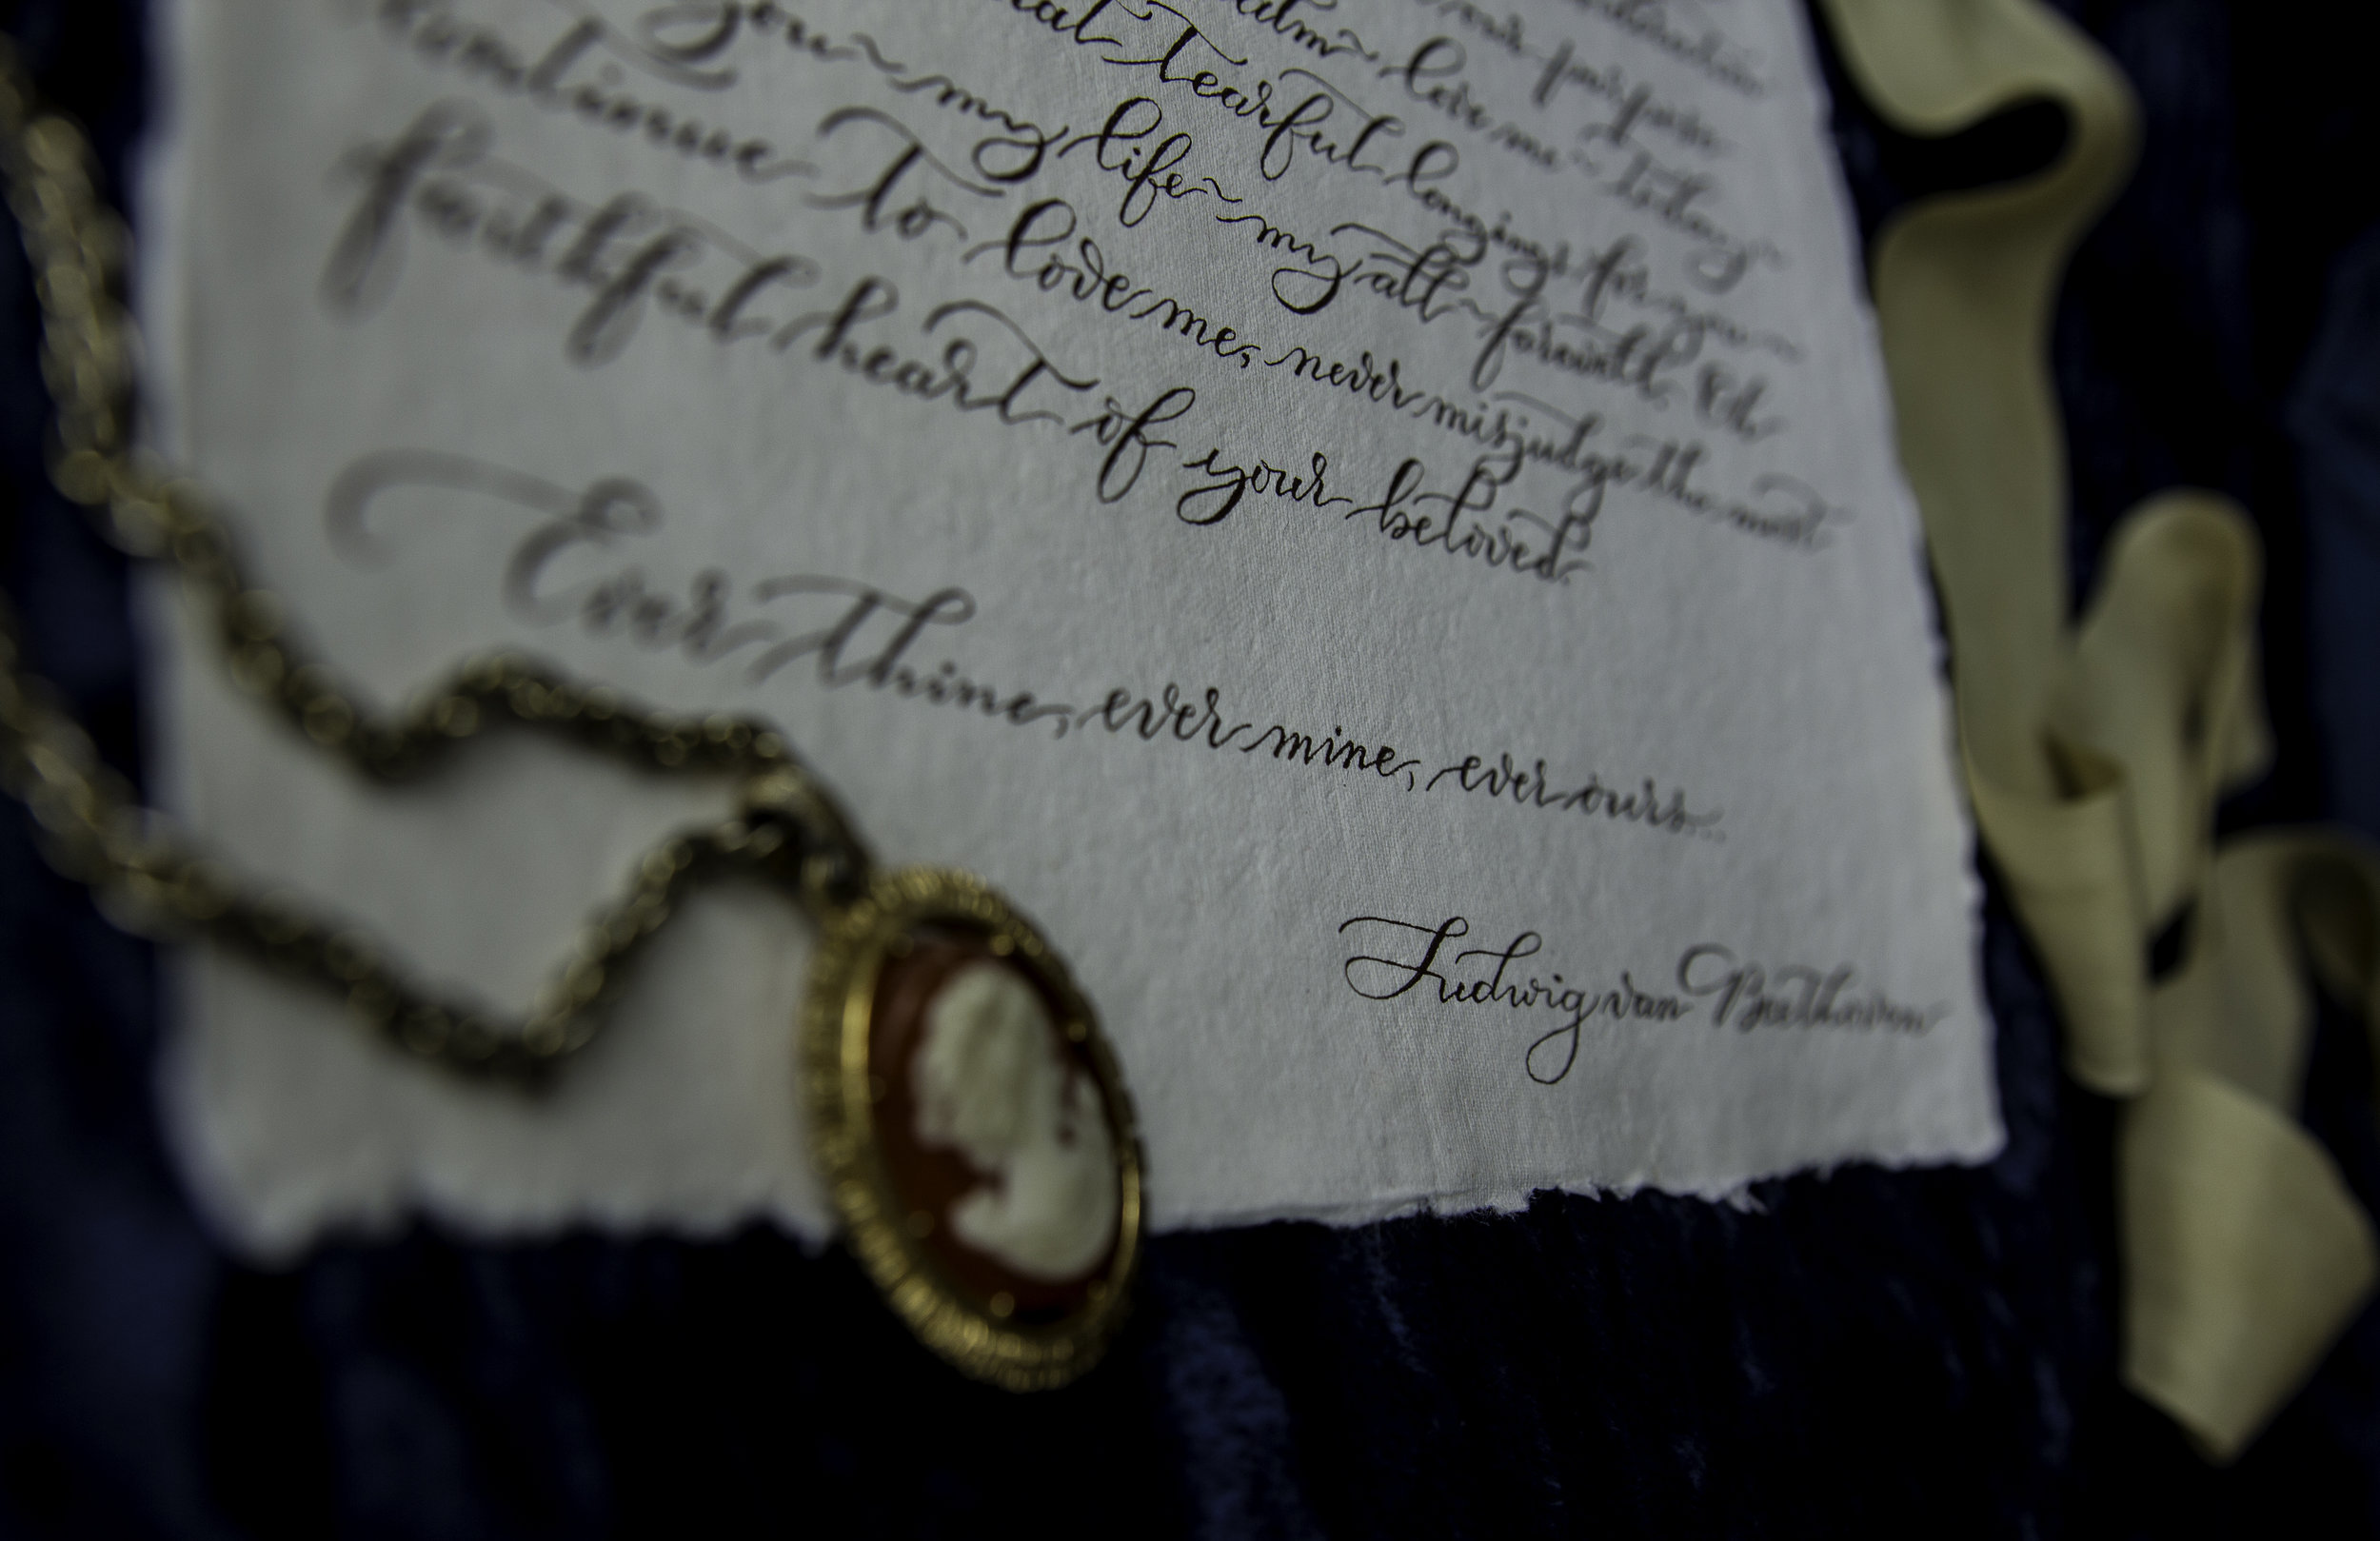 calm love me today
what tearful longings for you
you my life my all farewell. Oh
continue to love me, never misjudge the most
faithful heart of your beloved.
Ever thine, ever mine, ever ours...
Ludwig van Beethoven